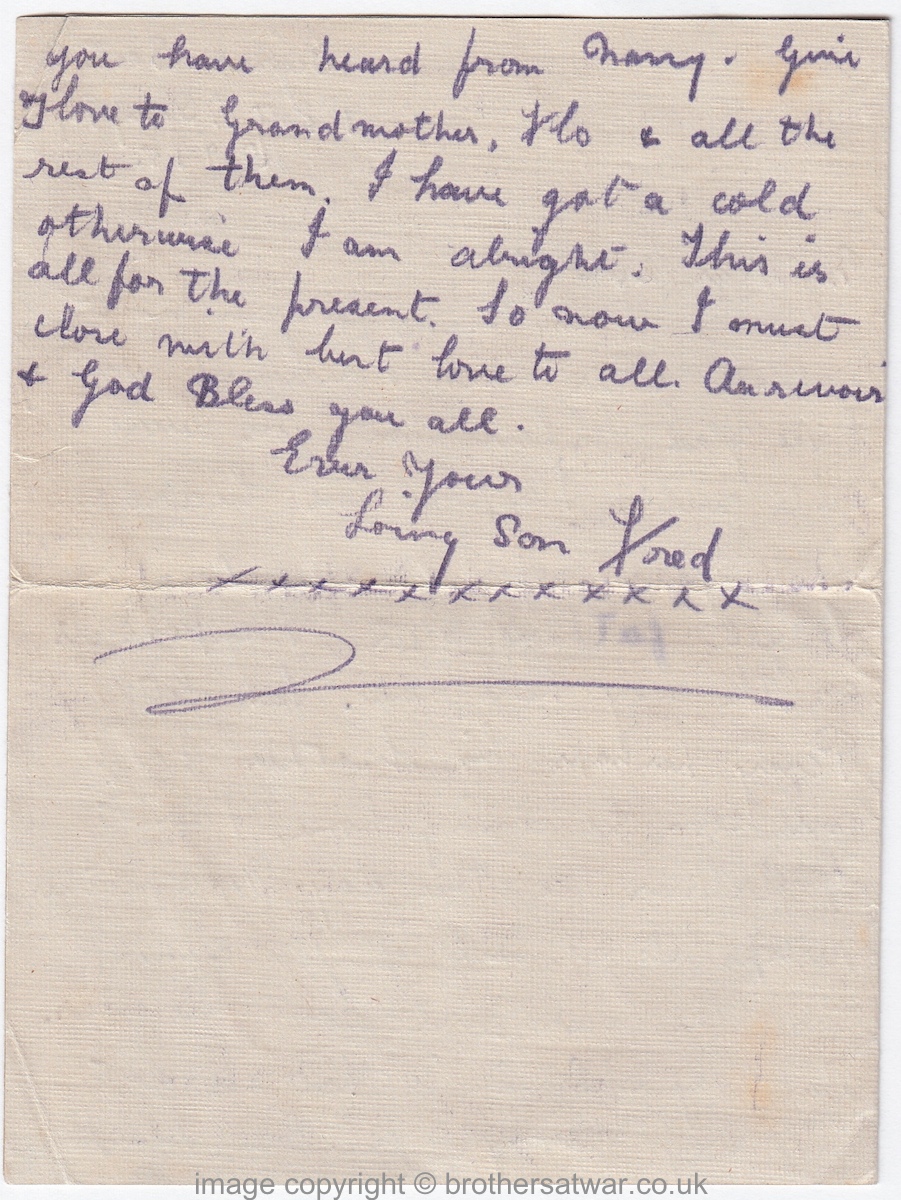 you have heard from Nanny. Give
love to Grandmother, Flo & all the
rest of them. I have got a cold
otherwise I am alright. This is
all for the present. So now I must
close with best love to all. Au revoir
& God Bless you all.
Ever Yours
Loving Son Fred
x x x x x x x x x x x x
image copyright © brothersatwar.co.uk